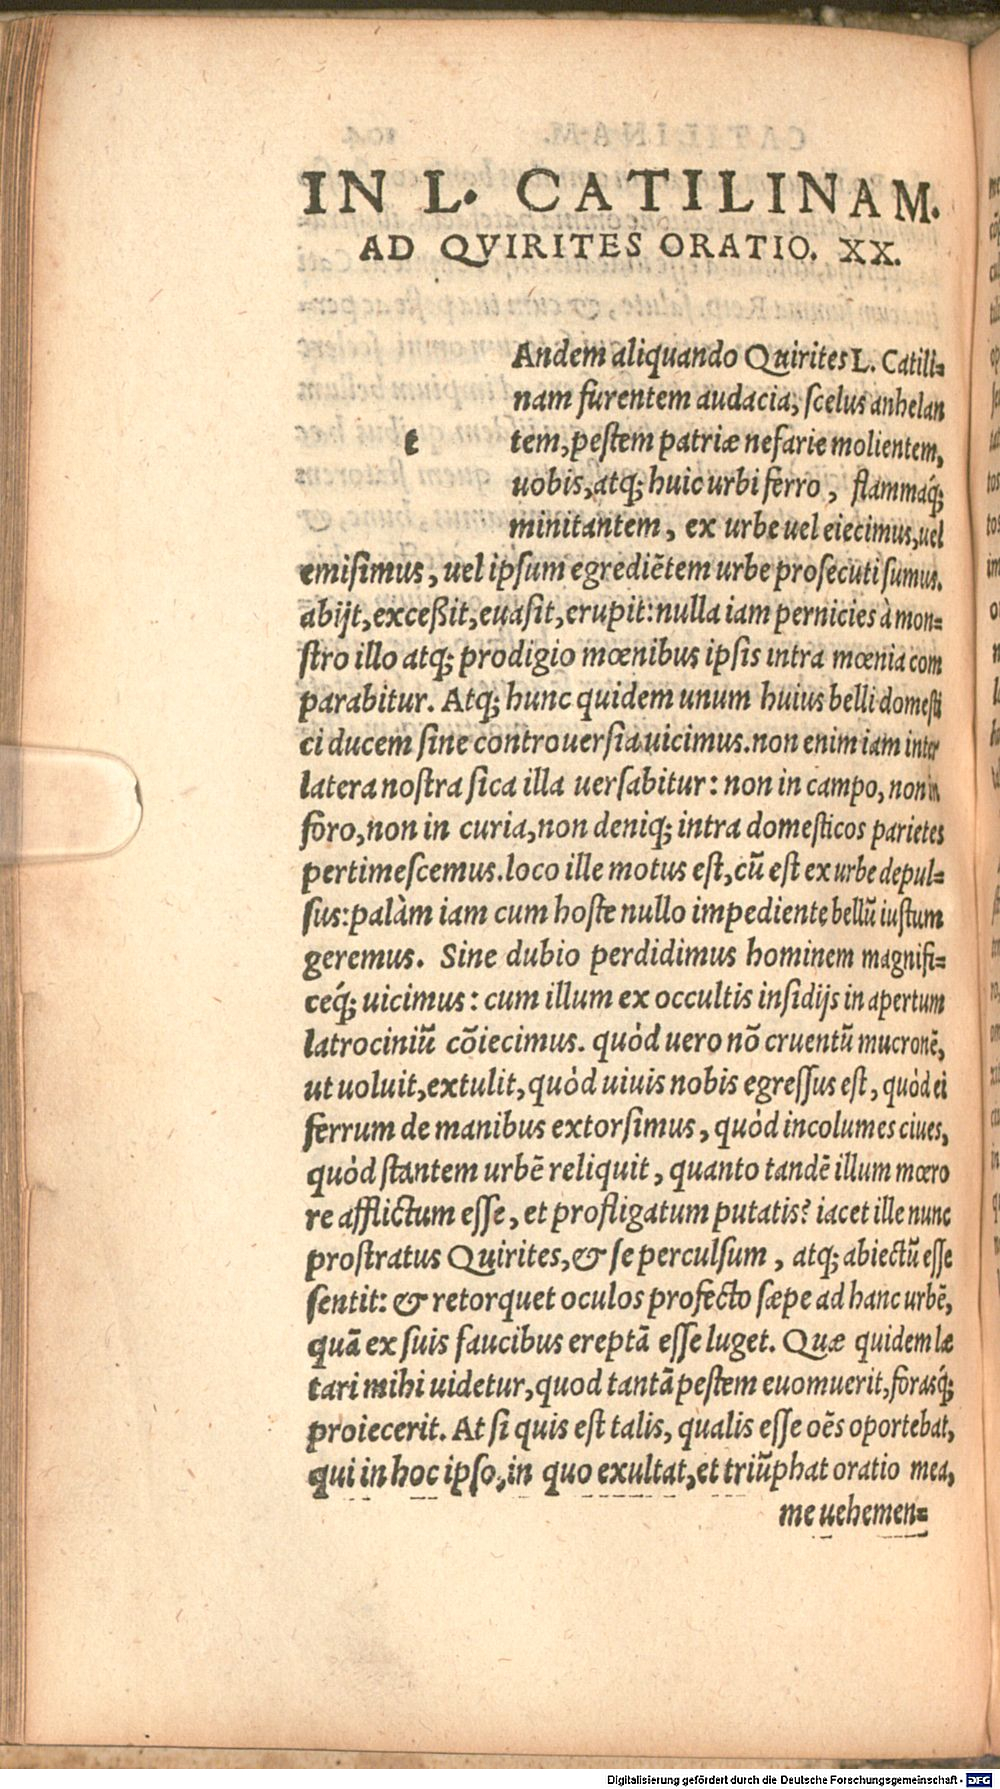 IN L. CATILINAM.
AD QVIRITES ORATIO. XX.
Andem aliquando Quirites L. Catili=
nam furentem audacia, scelus anhelan
t tem, pestem patriæ nefarie molientem,
uobis, atq; huic urbi ferro, flammáq;
minitantem, ex urbe uel eiecimus, uel
emisimus, uel ipsum egrediẽtem urbe prosecuti sumus.
abijt, exceßit, euasit, erupit: nulla iam pernicies à mon=
stro illo atq; prodigio mœnibus ipsis intra mœnia com
parabitur. Atq; hunc quidem unum huius belli domesti
ci ducem sine controuersia uicimus. non enim iam inter
latera nostra sica illa uersabitur: non in campo, non in
foro, non in curia, non deniq; intra domesticos parietes
pertimescemus. loco ille motus est, cũ est ex urbe depul=
sus: palàm iam cum hoste nullo impediente bellũ iustum
geremus. Sine dubio perdidimus hominem magnifi=
céq; uicimus: cum illum ex occultis insidijs in apertum
latrociniũ cõiecimus. quòd uero nõ cruentũ mucronẽ,
ut uoluit, extulit, quòd uiuis nobis egressus est, quòd ei
ferrum de manibus extorsimus, quòd incolumes ciues,
quòd stantem urbẽ reliquit, quanto tandẽ illum mœro
re afflictum esse, et profligatum putatis? iacet ille nunc
prostratus Quirites, & se perculsum, atq; abiectũ esse
sentit: & retorquet oculos profecto sæpe ad hanc urbẽ,
quã ex suis faucibus ereptã esse luget. Quæ quidem læ
tari mihi uidetur, quod tantã pestem euomuerit, forasq́;
proiecerit. At si quis est talis, qualis esse oẽs oportebat,
qui in hoc ipso, in quo exultat, et triũphat oratio mea,
me uehemen=
Digitalisierung gefördert durch die Deutsche Forschungsgemeinschaft - DFG